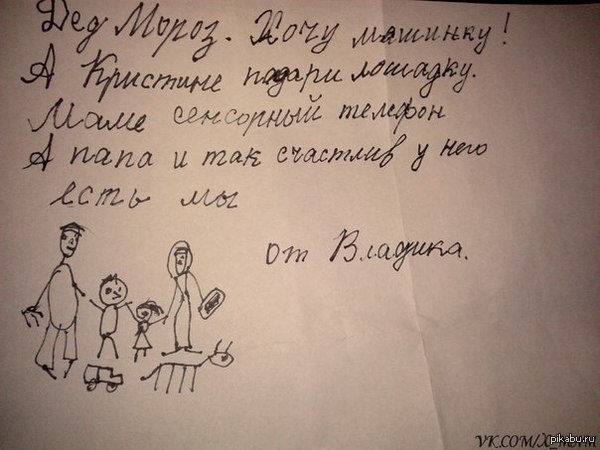 Дед Мороз. Хочу машинку!
А Кристине подари лошадку.
Маме сенсорный телефон
А папа и так счастлив у него
есть мы
от Владика.
pikabu.ru